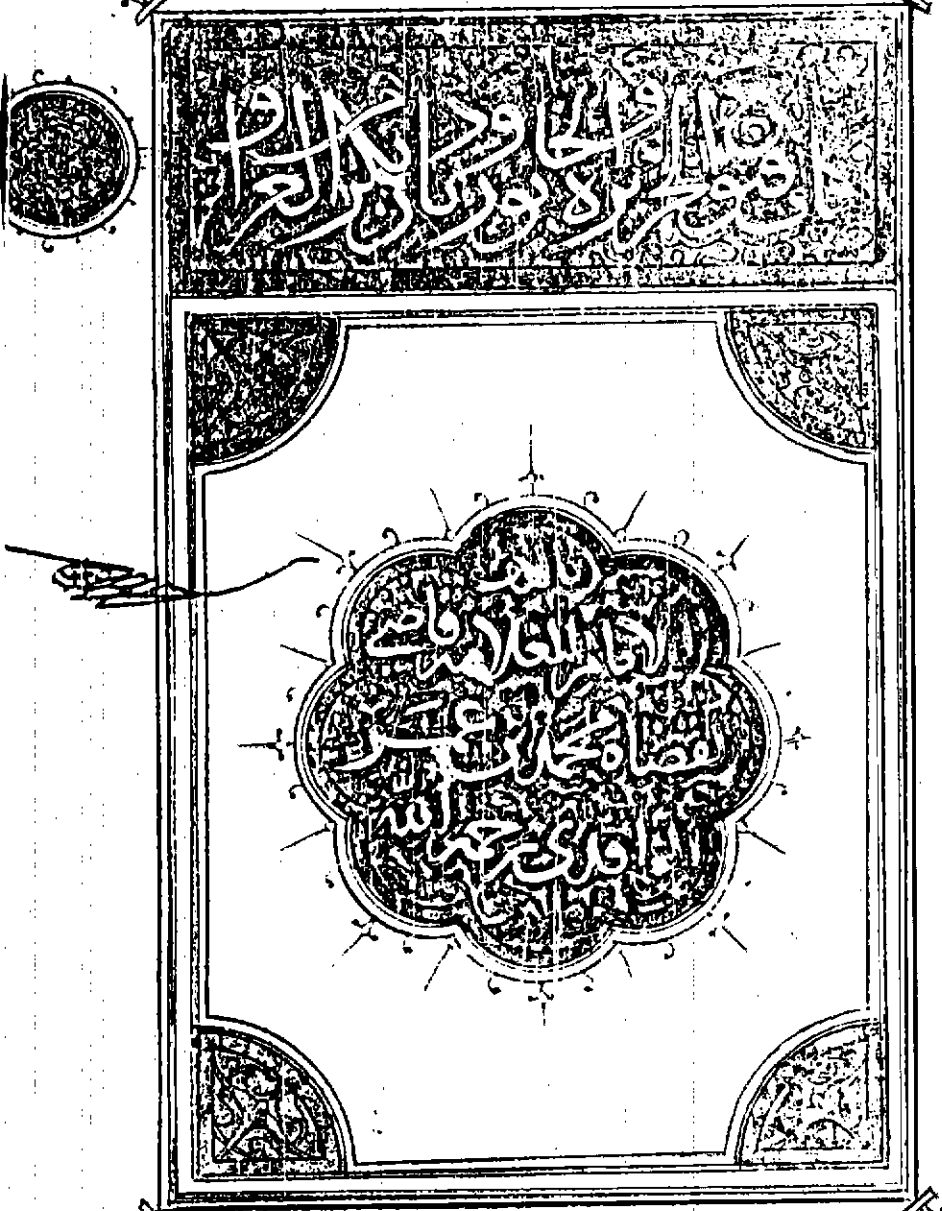 كتاب فتوح الجزيرة والخابور وديار بكر والعراق
تأليف
الامام العلامة قاضي
القضاة محمد بن عمر
الواقدي رحمه الله